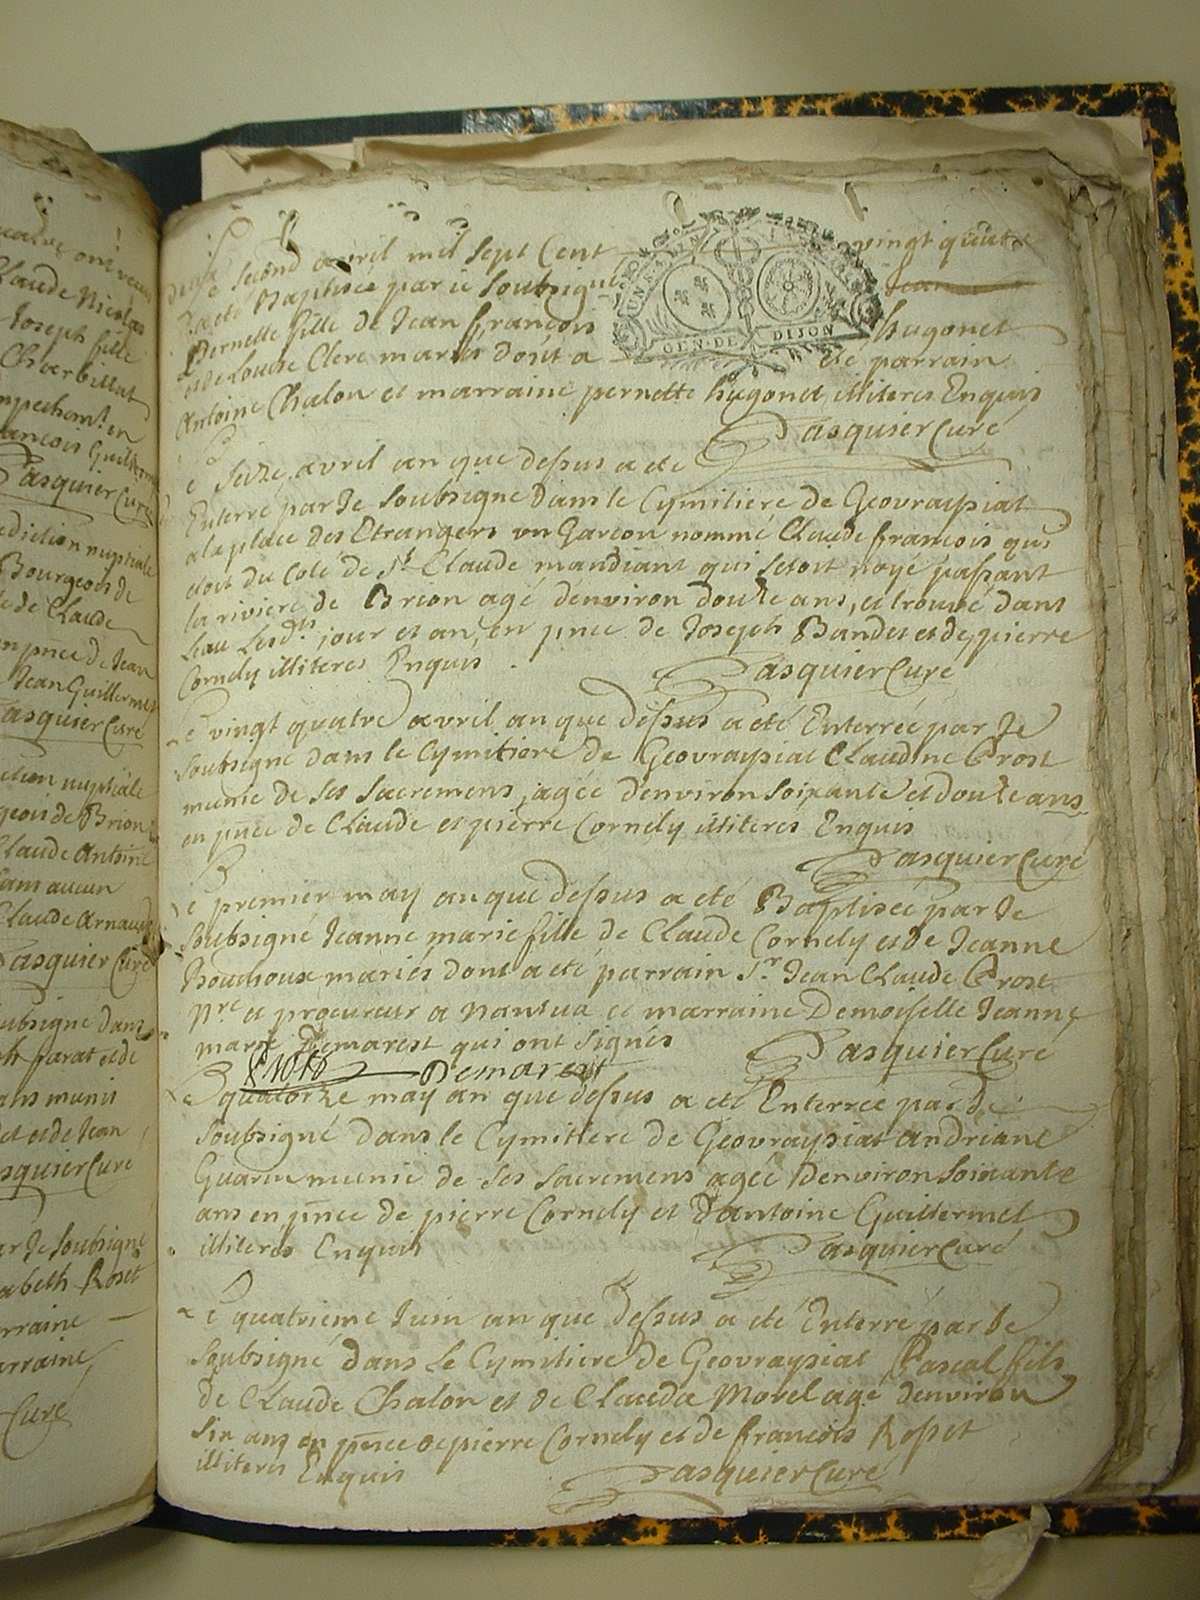 uatre
Claude Nicolas
Joseph fille
Charbillat
mpechent en
ancois Guillermet
Pasquier Curé
ediction nuptiale
Bourgeois de
de Claude
en pñce de Jean
Jean Guillermet
Pasquier Curé
ction nuptiale
geois de Brion
Claude Antoine
sans aucun
Claude Arnaud
Pasquier Curé
oubsigné dans
farat et de
ans munis
det et de Jean
asquier Curé
ar Je Soubsigné
abeth Roset
rraine
arraine
Curé
Le second avril mil sept Cent vingt quatre
a eté Baptisée par je Soubsigné Jean
Pernette fille de Jean francois hugonet
et de Louise Clerc mariés dont a eté parrain
Antoine Chalon et marraine pernette hugonet illiteres Enquis
Pasquier Curé
GEN·DE DIJON
Le Seize avril an que dessus a eté
Enterré par Je Soubsigné Dans le Cymitiere de Geovraysiat
a la place des Etrangers un Garcon nommé Claude francois qui
etoit du Coté de St Claude mandiant qui setoit noyé passant
la riviere de Brion agé d'environ douze ans, et trouvé dans
leau Lesdts jour et an, en pñce de Joseph Bandet et de pierre
Cornely illiteres Enquis
Pasquier Curé
Le vingt quatre avril an que dessus a eté Enterrée par Je
Soubsigné dans le Cymitiere de Geovraysiat Claudine Prost
munie de ses sacremens, agée d'environ soixante et douze ans
en pñce de Claude et pierre Cornely illiteres Enquis
Pasquier Curé
Le premier may an que dessus a eté Baptisée par Je
Soubsigné Jeanne marie fille de Claude Cornely et de Jeanne
Bouchoux mariés dont a eté parrain Sr Jean Claude Prost
Nre et procureur a Nantua et marraine Demoiselle Jeanne
marie Demarest qui ont signés
Pasquier Curé
Prost Demarest
Le quatorze may an que dessus a eté Enterrée par Je
Soubsigné dans le Cymitiere de Geovraysiat andriane
Guarin munie de ses sacremens agée d'environ soixante
ans en pñce de pierre Cornely et d'antoine Guillermet
illiteres Enquis
Pasquier Curé
Le quatrieme Juin an que dessus a eté Enterré par Je
Soubsigné dans le Cymitiere de Geovraysiat Pascal fils
de Claude Chalon et de Clauda Morel agé d'environ
six ans en pñce de pierre Cornely et de francois Rosset
illiteres Enquis
Pasquier Curé